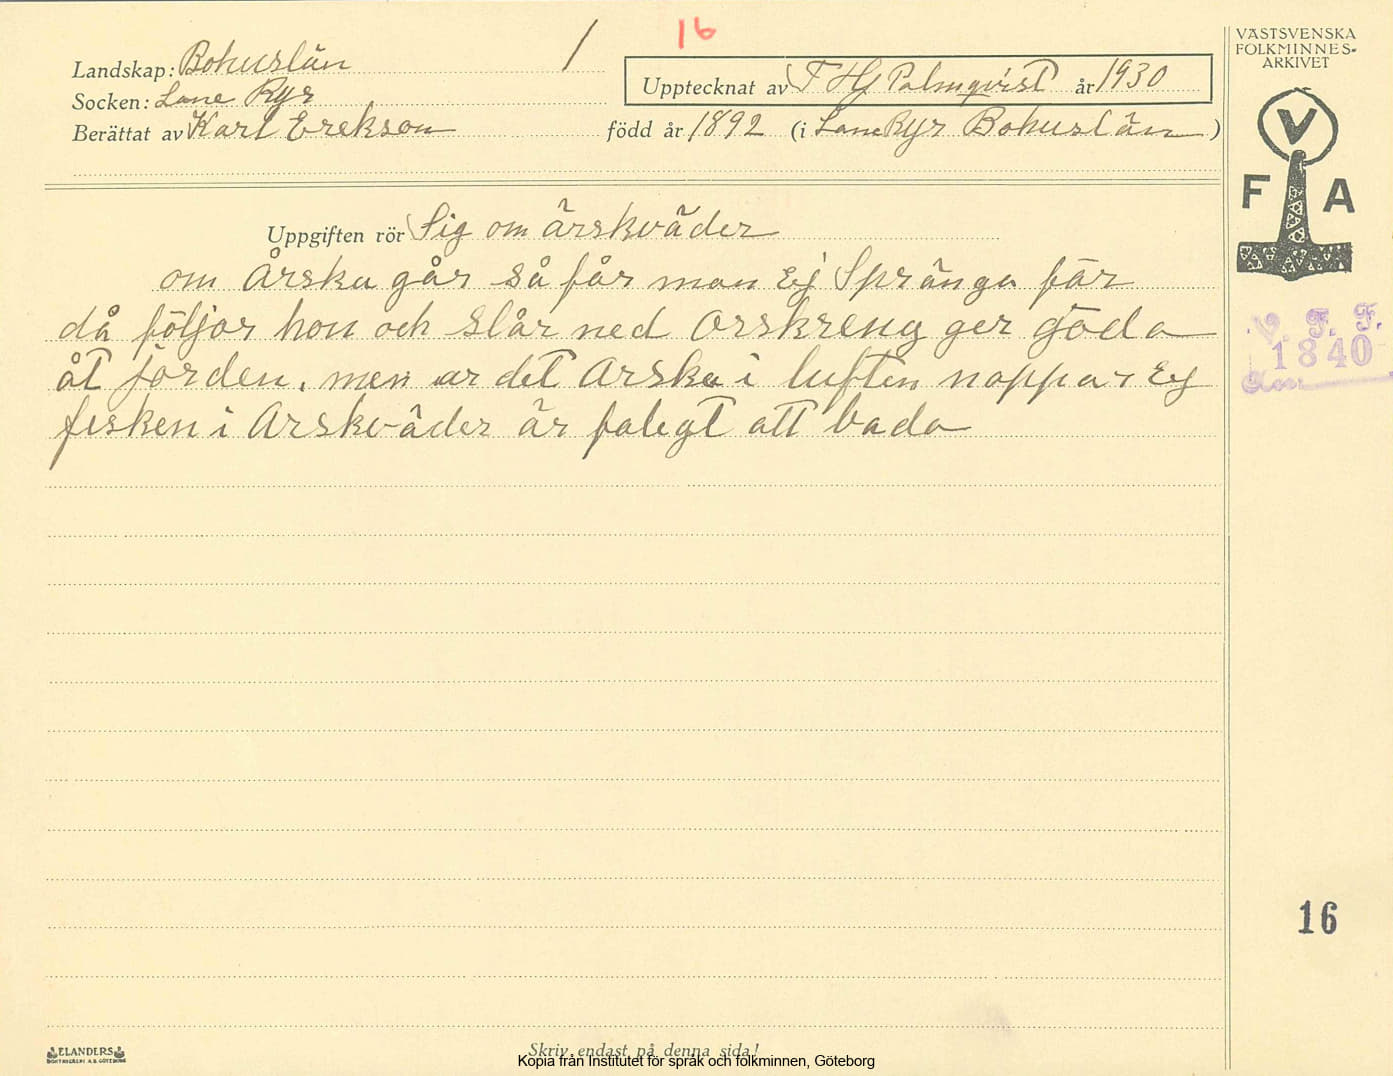 16
1
VÄSTSVENSKA
FOLKMINNES-
ARKIVET
Landskap: Bohuslän
Upptecknat av T Hj Palmqvist år 1930
Socken: Lane Ryr
Berättat av Karl Erekson född år 1892 (i Lane Ryr Bohuslän)
V
F A
Uppgiften rör Sig om årskväder
om Årska går så får man Ej Spränga får
då följor hon och Slår ned Orskreng ger göda
åt jorden, men ar det Arska i luften nappar Ej
fisken i Arskväder är falegt att bada
V. F. F.
1840
16
ELANDERS
BOKTRYCKERI A.B. GÖTEBORG
Skriv endast på denna sida!
Kopia från Institutet för språk och folkminnen, Göteborg